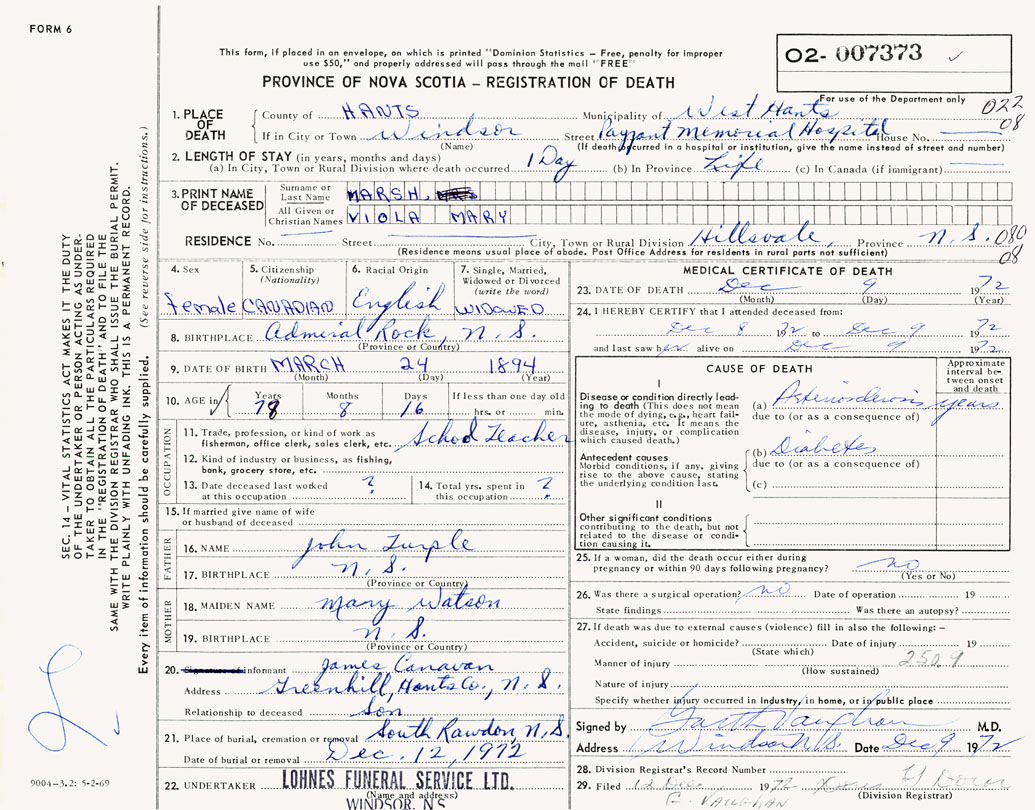 FORM 6
O2- 007373
This form, if placed in an envelope, on which is printed "Dominion Statistics — Free, penalty for improper
use $50," and properly addressed will pass through the mail "FREE"
PROVINCE OF NOVA SCOTIA — REGISTRATION OF DEATH
For use of the Department only
022
08
1. PLACE OF DEATH
County of HANTS Municipality of West Hants
If in City or Town Windsor Street Payzant Memorial Hospital House No.
(Name) (If death occurred in a hospital or institution, give the name instead of street and number)
2. LENGTH OF STAY (in years, months and days)
(a) In City, Town or Rural Division where death occurred 1 Day (b) In Province Life (c) In Canada (if immigrant)
3. PRINT NAME OF DECEASED
Surname or Last Name MARSH,
All Given or Christian Names VIOLA MARY
RESIDENCE No. Street City, Town or Rural Division Hillsvale, Province N.S. 080
08
(Residence means usual place of abode. Post Office Address for residents in rural parts not sufficient)
4. Sex
female
5. Citizenship
(Nationality)
CANADIAN
6. Racial Origin
English
7. Single, Married, Widowed or Divorced
(write the word)
WIDOWED
8. BIRTHPLACE Admiral Rock, N.S.
(Province or Country)
9. DATE OF BIRTH MARCH 24 1894
(Month) (Day) (Year)
10. AGE in Years Months Days If less than one day old
78 8 16 hrs. or min.
OCCUPATION
11. Trade, profession, or kind of work as School Teacher
fisherman, office clerk, sales clerk, etc.
12. Kind of industry or business, as fishing,
bank, grocery store, etc.
13. Date deceased last worked at this occupation ?
14. Total yrs. spent in this occupation ?
15. If married give name of wife
or husband of deceased
FATHER
16. NAME John Turple
17. BIRTHPLACE N.S.
(Province or Country)
MOTHER
18. MAIDEN NAME Mary Watson
19. BIRTHPLACE N.S.
(Province or Country)
20. Signature of informant James Canavan
Address Greenhill, Hants Co., N.S.
Relationship to deceased Son
21. Place of burial, cremation or removal South Rawdon N.S.
Date of burial or removal Dec. 12, 1972
22. UNDERTAKER LOHNES FUNERAL SERVICE LTD.
(Name and address)
WINDSOR, N.S
MEDICAL CERTIFICATE OF DEATH
23. DATE OF DEATH Dec 9 1972
(Month) (Day) (Year)
24. I HEREBY CERTIFY that I attended deceased from:
Dec 8 72 to Dec 9 1972
and last saw her alive on Dec 9 1972
CAUSE OF DEATH
Approximate interval between onset and death
I
Disease or condition directly leading to death (This does not
mean the mode of dying, e.g., heart failure, asthenia, etc. It means the
disease, injury, or complication
which caused death.)
(a) Arteriosclerosis years
due to (or as a consequence of)
Antecedent causes
Morbid conditions, if any, giving
rise to the above cause, stating
the underlying condition last.
(b) Diabetes
due to (or as a consequence of)
(c)
II
Other significant conditions
contributing to the death, but not
related to the disease or condition causing it.
25. If a woman, did the death occur either during
pregnancy or within 90 days following pregnancy? no
(Yes or No)
26. Was there a surgical operation? no Date of operation 19
State findings Was there an autopsy?
27. If death was due to external causes (violence) fill in also the following: —
Accident, suicide or homicide? Date of injury 19
(State which)
Manner of injury 250.9
(How sustained)
Nature of injury
Specify whether injury occurred in industry, in home, or in public place
Signed by Garth Vaughan M.D.
Address Windsor N.S. Date Dec 9 1972
28. Division Registrar's Record Number
29. Filed 12 Dec. 1972
(Division Registrar)
G. VAUGHAN
SEC. 14 — VITAL STATISTICS ACT MAKES IT THE DUTY
OF THE UNDERTAKER OR PERSON ACTING AS UNDER-
TAKER TO OBTAIN ALL THE PARTICULARS REQUIRED
IN THE "REGISTRATION OF DEATH" AND TO FILE THE
SAME WITH THE DIVISION REGISTRAR WHO SHALL ISSUE THE BURIAL PERMIT.
WRITE PLAINLY WITH UNFADING INK. THIS IS A PERMANENT RECORD.
Every item of information should be carefully supplied. (See reverse side for instructions.)
9004-3.2: 5-2-69